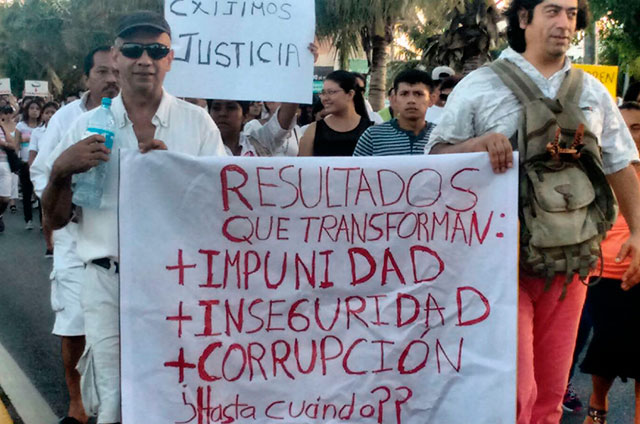 EXIJIMOS
JUSTICIA
RESULTADOS
QUE TRANSFORMAN:
+IMPUNIDAD
+INSEGURIDAD
+CORRUPCIÓN
¿¡Hasta cuándo??